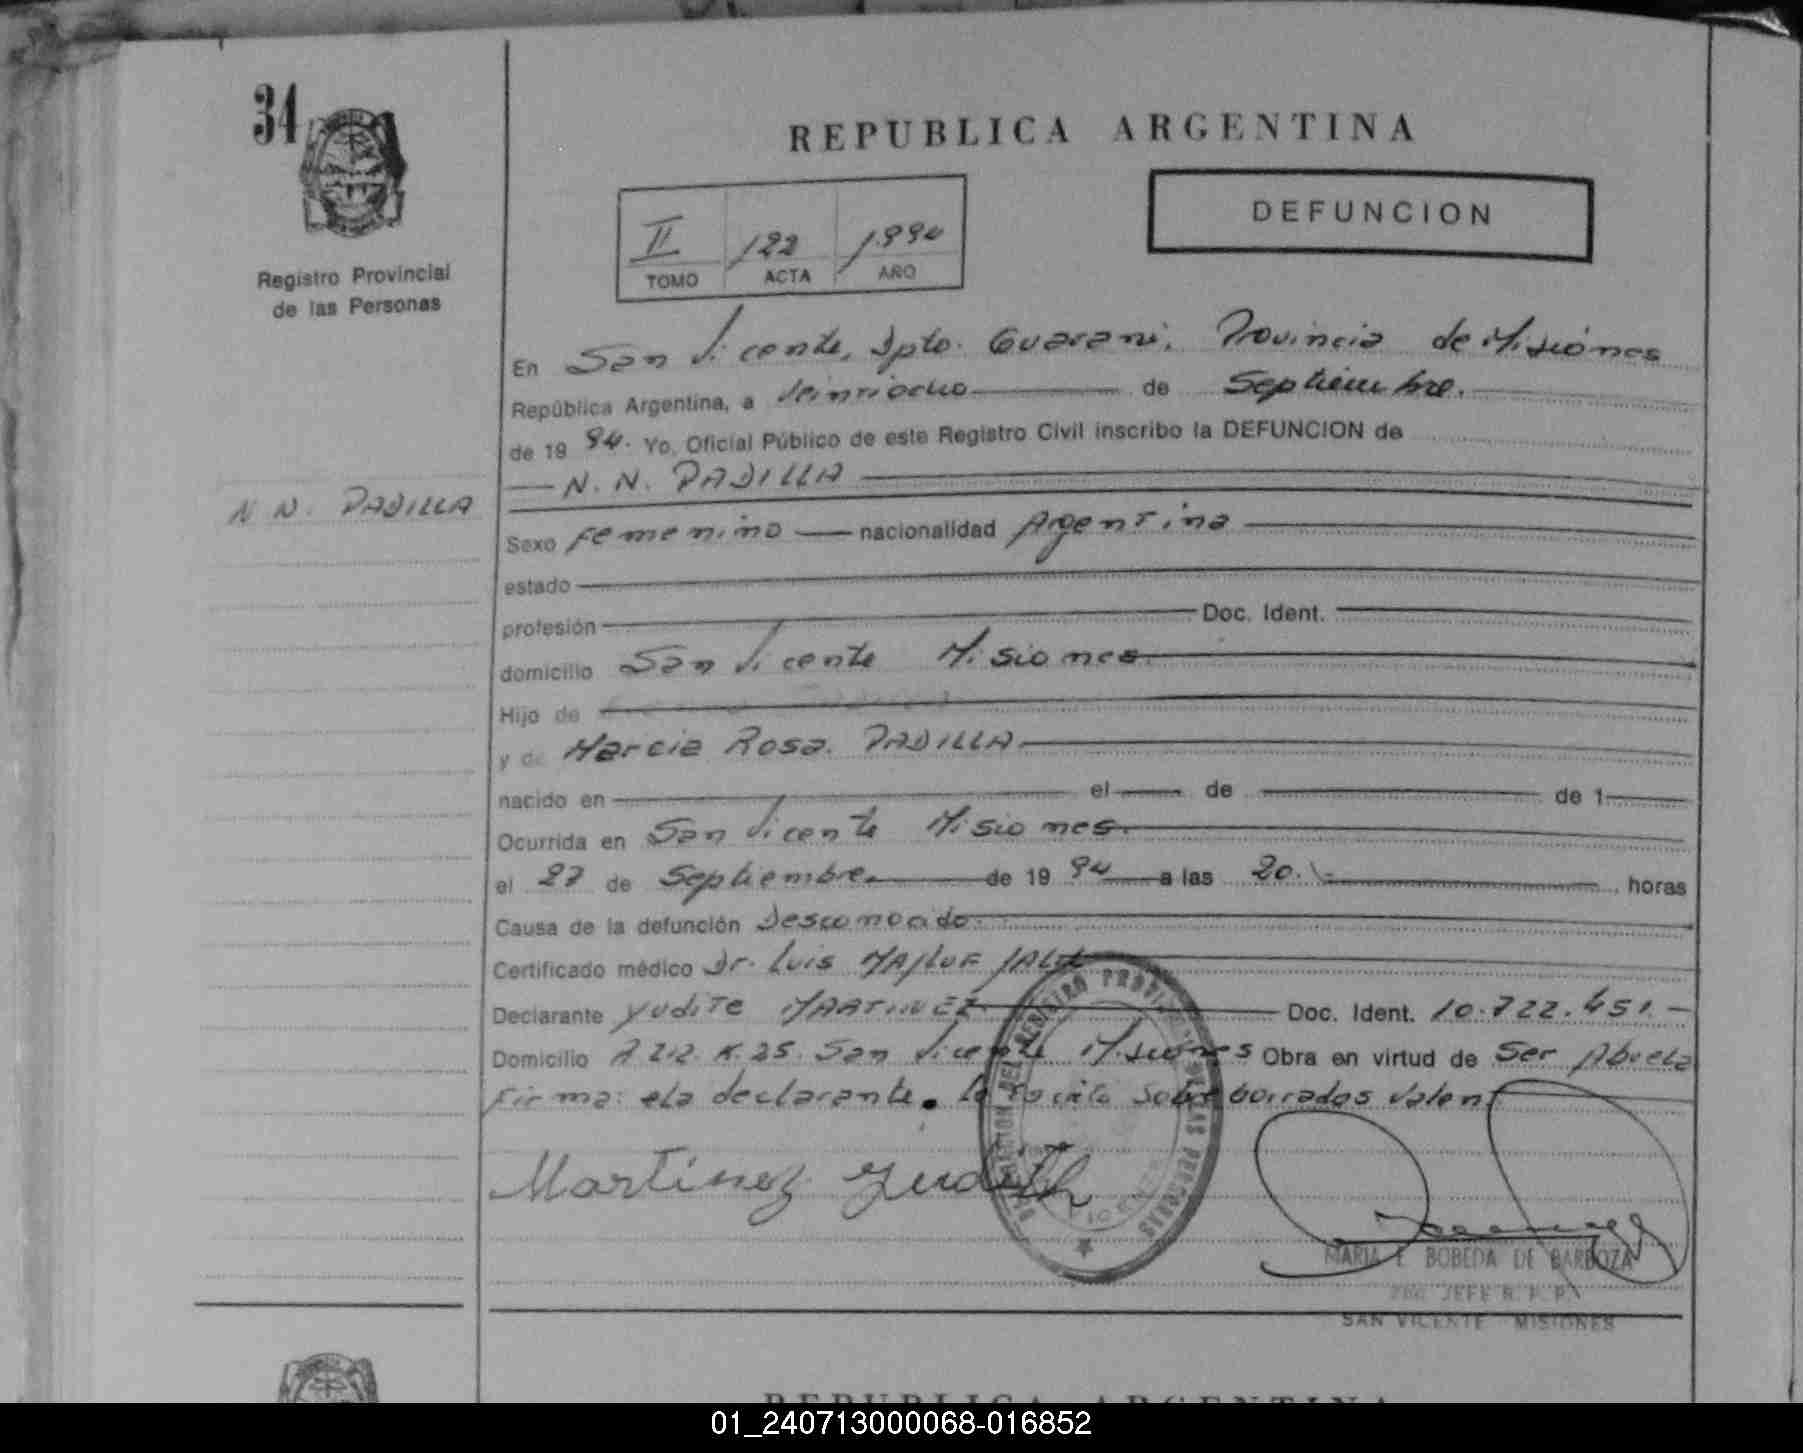 34
REPUBLICA ARGENTINA
DEFUNCION
II 122 1994
TOMO ACTA AÑO
Registro Provincial
de las Personas
En San Vicente, Dpto. Guarani, Provincia de Misiones
República Argentina, a Veintiocho de Septiembre.
de 19 94. Yo, Oficial Público de este Registro Civil inscribo la DEFUNCION de
N. N. PADILLA
N N. PADILLA
Sexo femenino nacionalidad Argentina
estado
profesión Doc. Ident.
domicilio San Vicente Misiones.
Hijo de
y de Marcia Rosa. PADILLA
nacido en el de de 1
Ocurrida en San Vicente Misiones.
el 27 de Septiembre. de 19 94 a las 20. horas
Causa de la defunción Desconocido.
Certificado médico Dr. Luis
Declarante Yudite MARTINEZ Doc. Ident. 10.722.451.-
Domicilio K. 25. San Vicente Misiones Obra en virtud de Ser Abuela
Firma: la declarante. Lo escrito sobre borrados valen
Martinez Judith
DIRECCION DEL REGISTRO PROVINCIAL DE LAS PERSONAS
MISIONES
MARIA E BOBEDA DE BARBOZA
JEFE R. P. P.
SAN VICENTE MISIONES
REPUBLICA ARGENTINA
01_240713000068-016852